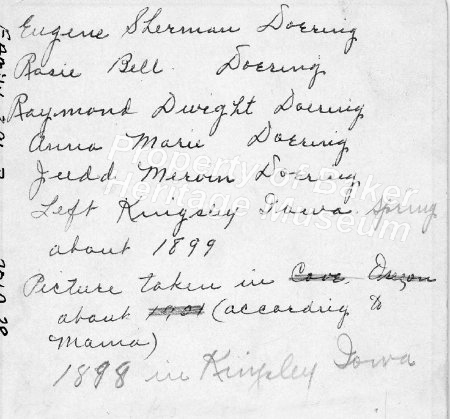 Eugene Sherman Doering
Rosie Bell Doering
Raymond Dwight Doering
Anna Marie Doering
Judd Mervin Doering
Left Kingsley Iowa. Spring
about 1899
Picture taken in Cove, Oregon
about 1901 (according to
Mama)
1898 in Kingsley Iowa
Property of Baker
Heritage Museum